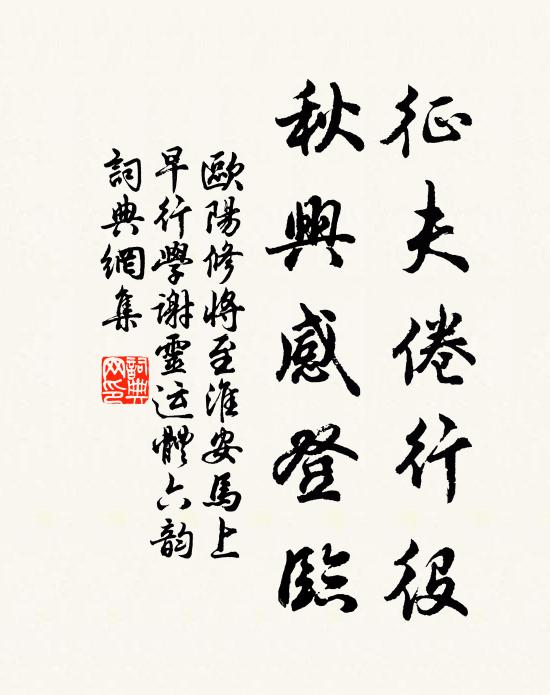 征夫倦行役
秋興感登臨
歐陽修將至淮安馬上
早行學謝靈运體六韵
詞典網集
詞典网印